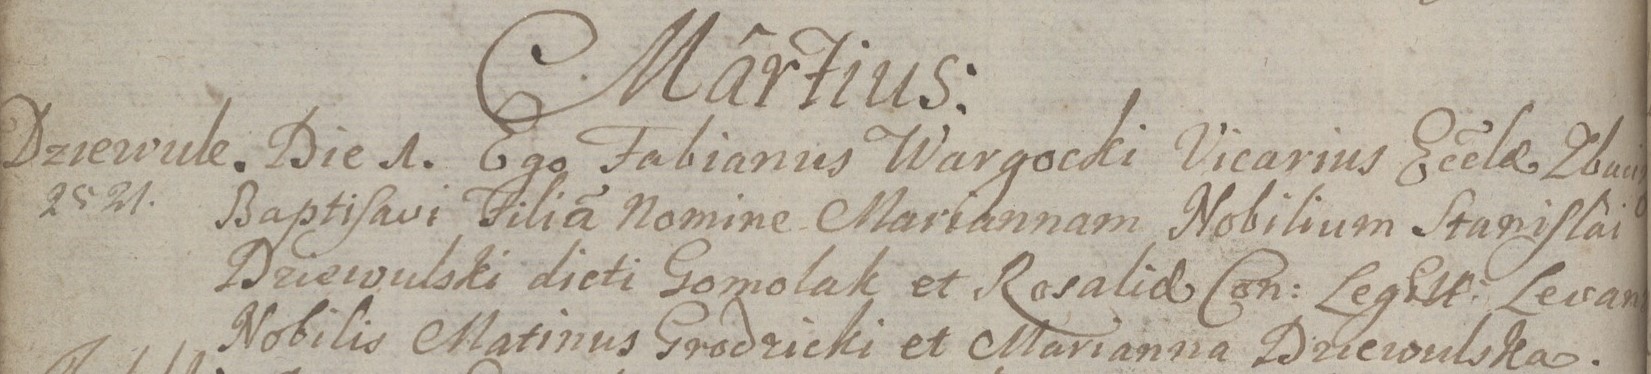 Mârtius:
Dziewule. Die 1. Ego Fabianus Wargocki Vicarius Ecclæ
Baptisavi Filiã Nomine Mariannam Nobilium Stanislai
Dziewulski dicti Gomolak et Rosaliæ Con: Legit: Levan
Nobilis Matinus Grodzicki et Marianna Dziewulska.